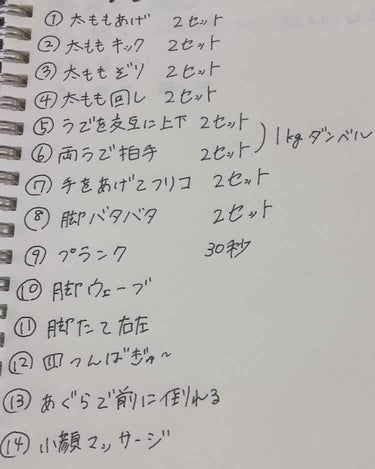 ① 太ももあげ 2セット
② 太ももキック 2セット
③ 太ももぞり 2セット
④ 太もも回し 2セット
⑤ うでを交互に上下 2セット
⑥ 両うで拍手 2セット ) 1kgダンベル
⑦ 手をあげてフリコ 2セット
⑧ 脚バタバタ 2セット
⑨ プランク 30秒
⑩ 脚ウェーブ
⑪ 脚たて右左
⑫ 四つんばぎゅ~
⑬ あぐらで前に倒れる
⑭ 小顔マッサージ